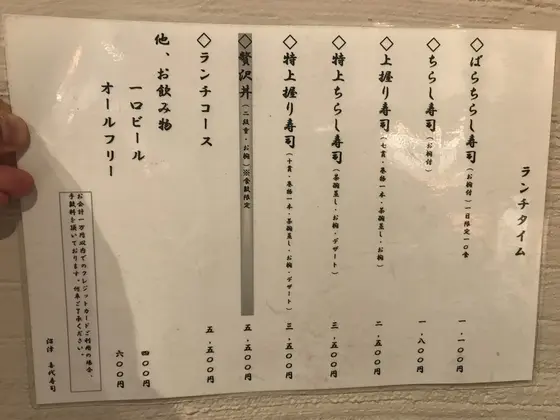 ランチタイム
◇ばらちらし寿司(お椀付)一日限定一〇食 一、一〇〇円
◇ちらし寿司(お椀付) 一、八〇〇円
◇上握り寿司(七貫・巻物一本・茶碗蒸し・お椀) 二、五〇〇円
◇特上ちらし寿司(茶碗蒸し・お椀・デザート) 三、五〇〇円
◇特上握り寿司(十貫・巻物一本・茶碗蒸し・お椀・デザート) 三、五〇〇円
◇贅沢丼(二段重・お椀)※食数限定 五、五〇〇円
◇ランチコース 五、五〇〇円
他、お飲み物
一口ビール 四〇〇円
オールフリー 六〇〇円
お会計一万円以内でのクレジットカードご利用の場合、
手数料を頂いております。何卒ご了承ください。
喜代寿司